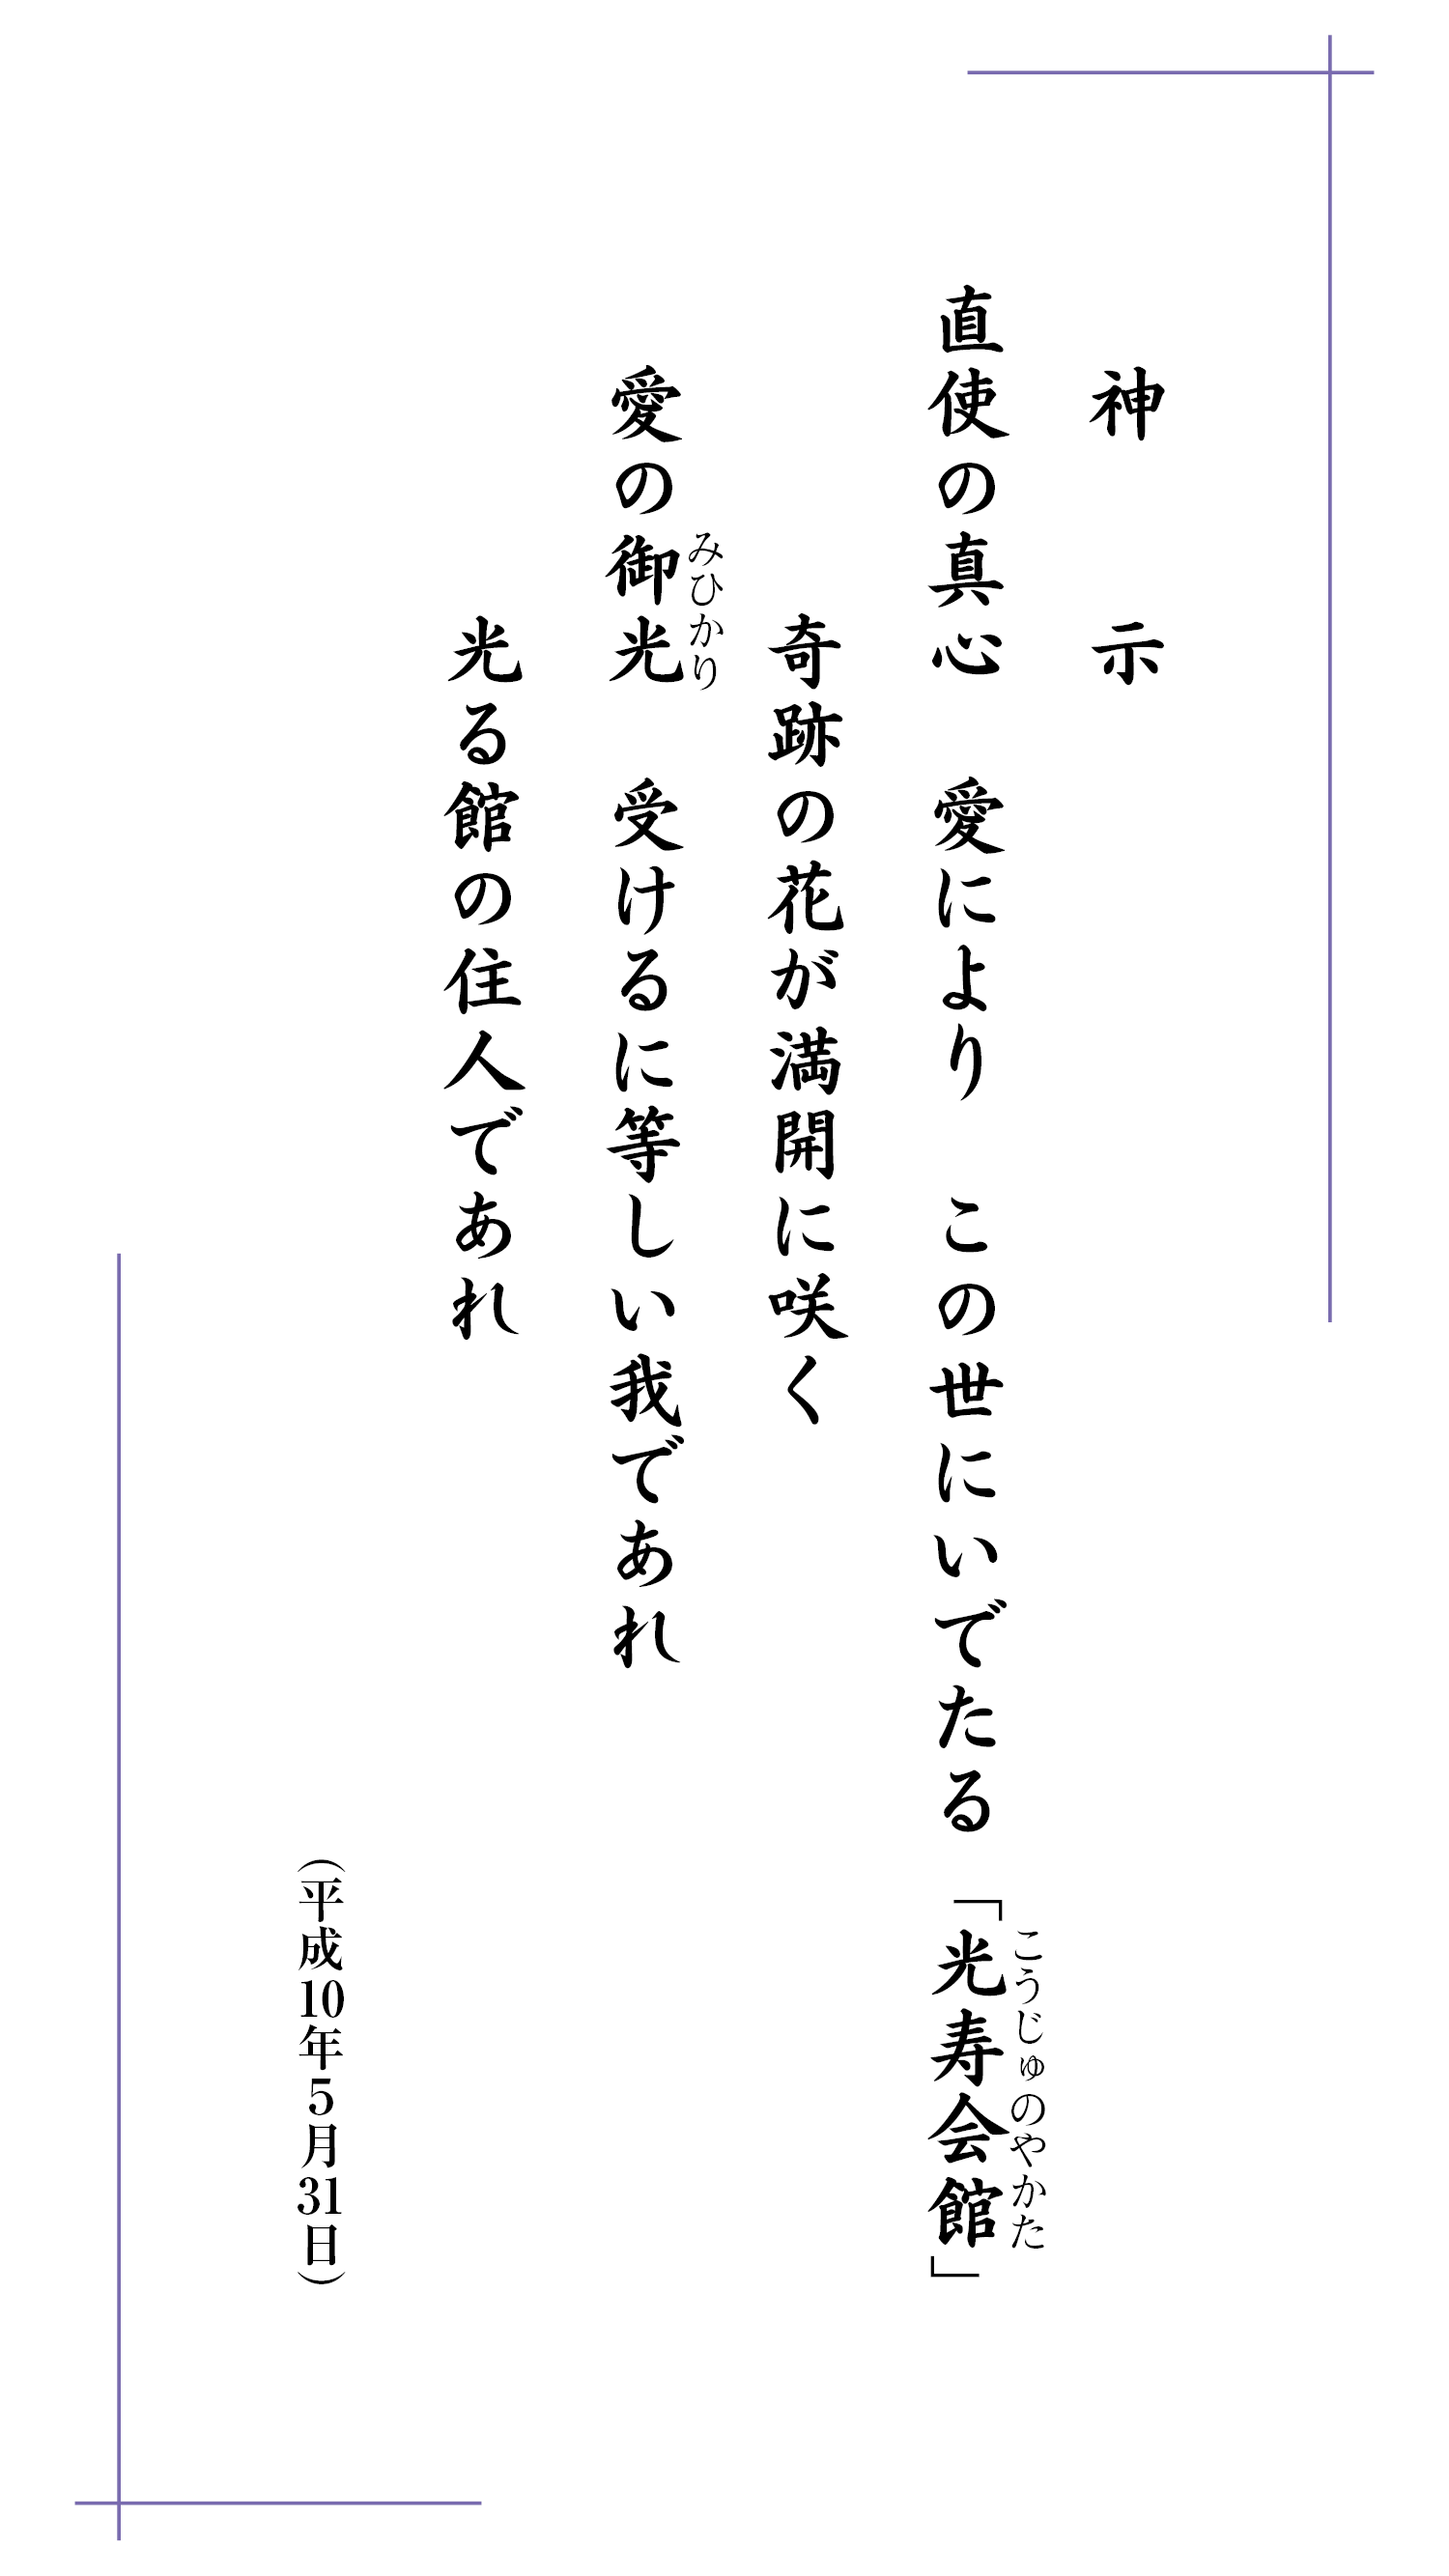 神　示
直使の真心　愛により　この世にいでたる「光寿会館」
こうじゅのやかた
奇跡の花が満開に咲く
愛の御光　受けるに等しい我であれ
みひかり
光る館の住人であれ
（平成10年5月31日）